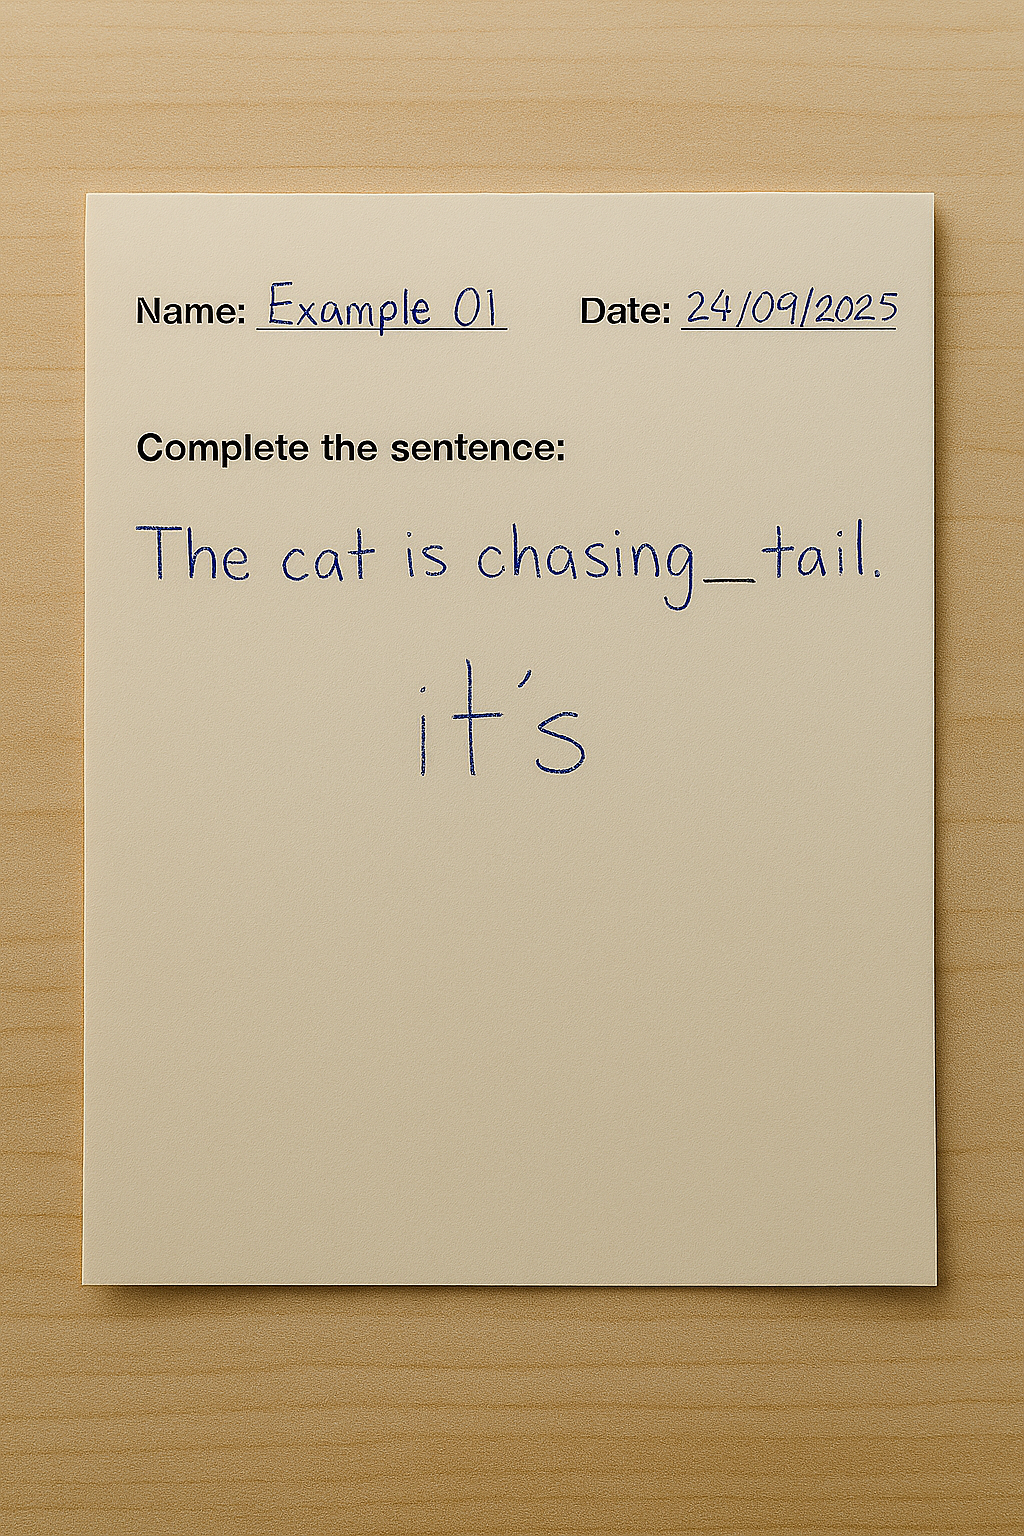 Name: Example 01 Date: 24/09/2025
Complete the sentence:
The cat is chasing_tail.
it's